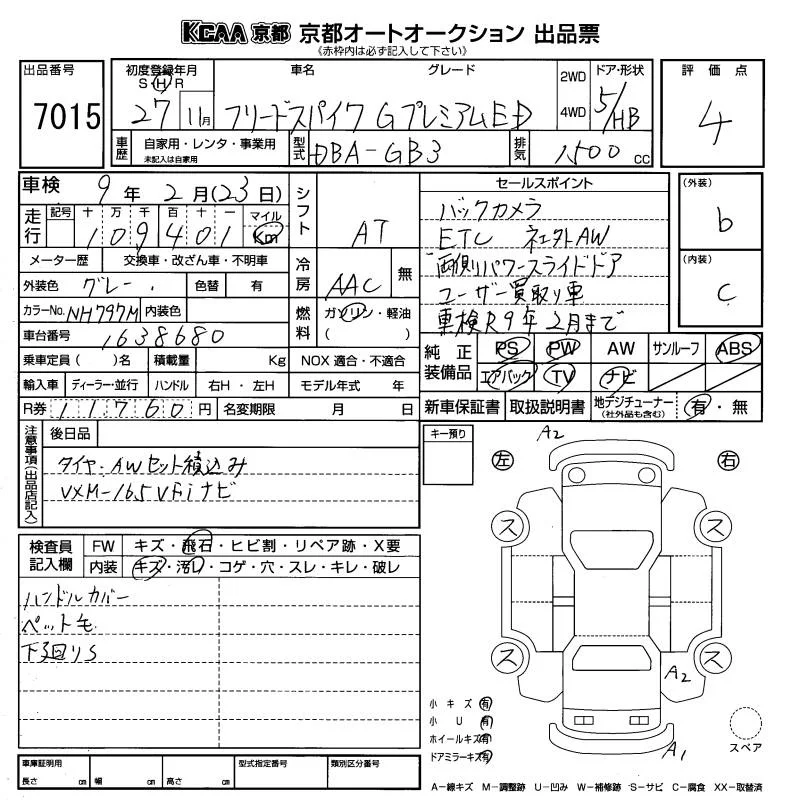 KCAA 京都 京都オートオークション 出品票
《赤枠内は必ず記入して下さい》
出品番号 7015
初度登録年月 S H R 27 11月
車名 グレード
フリードスパイク GプレミアムED
2WD 4WD
ドア・形状 5/HB
評価点 4
車歴 自家用・レンタ・事業用 未記入は自家用
型式 DBA-GB3
排気 1,500 cc
車検 9年 2月(23日)
走行 記号 十 万 千 百 十 一 マイル Km
109401
メーター歴 交換車・改ざん車・不明車
外装色 グレー 色替 有
カラーNo. NH797M 内装色
車台番号 1638680
乗車定員 ( )名 積載量 Kg NOX 適合・不適合
輸入車 ディーラー・並行 ハンドル 右H・左H モデル年式 年
R券 11760円 名変期限 月 日
シフト AT
冷房 AAC 無
燃料 ガソリン・軽油 ( )
セールスポイント
バックカメラ
ETC 社外AW
両側パワースライドドア
ユーザー買取り車
車検R9年2月まで
(外装) b
(内装) C
純正装備品 PS PW AW サンルーフ ABS
エアバック TV ナビ
新車保証書 取扱説明書 地デジチューナー (社外品も含む) 有・無
注意事項(出品店記入) 後日品
タイヤ・AWセット積込み
VXM-165VFiナビ
キー預り
検査員記入欄 FW キズ・飛石・ヒビ割・リペア跡・X要
内装 キズ・汚レ・コゲ・穴・スレ・キレ・破レ
ハンドルカバー
ペット毛
下廻りS
A2
左 右
ス ス
ス ス
A2
A1
小キズ 有
小U 有
ホイールキズ 有
ドアミラーキズ 有
スペア
車庫証明用 長さ cm 幅 cm 高さ cm 型式指定番号 類別区分番号
A-線キズ M-調整跡 U-凹み W-補修跡 S-サビ C-腐食 XX-取替済